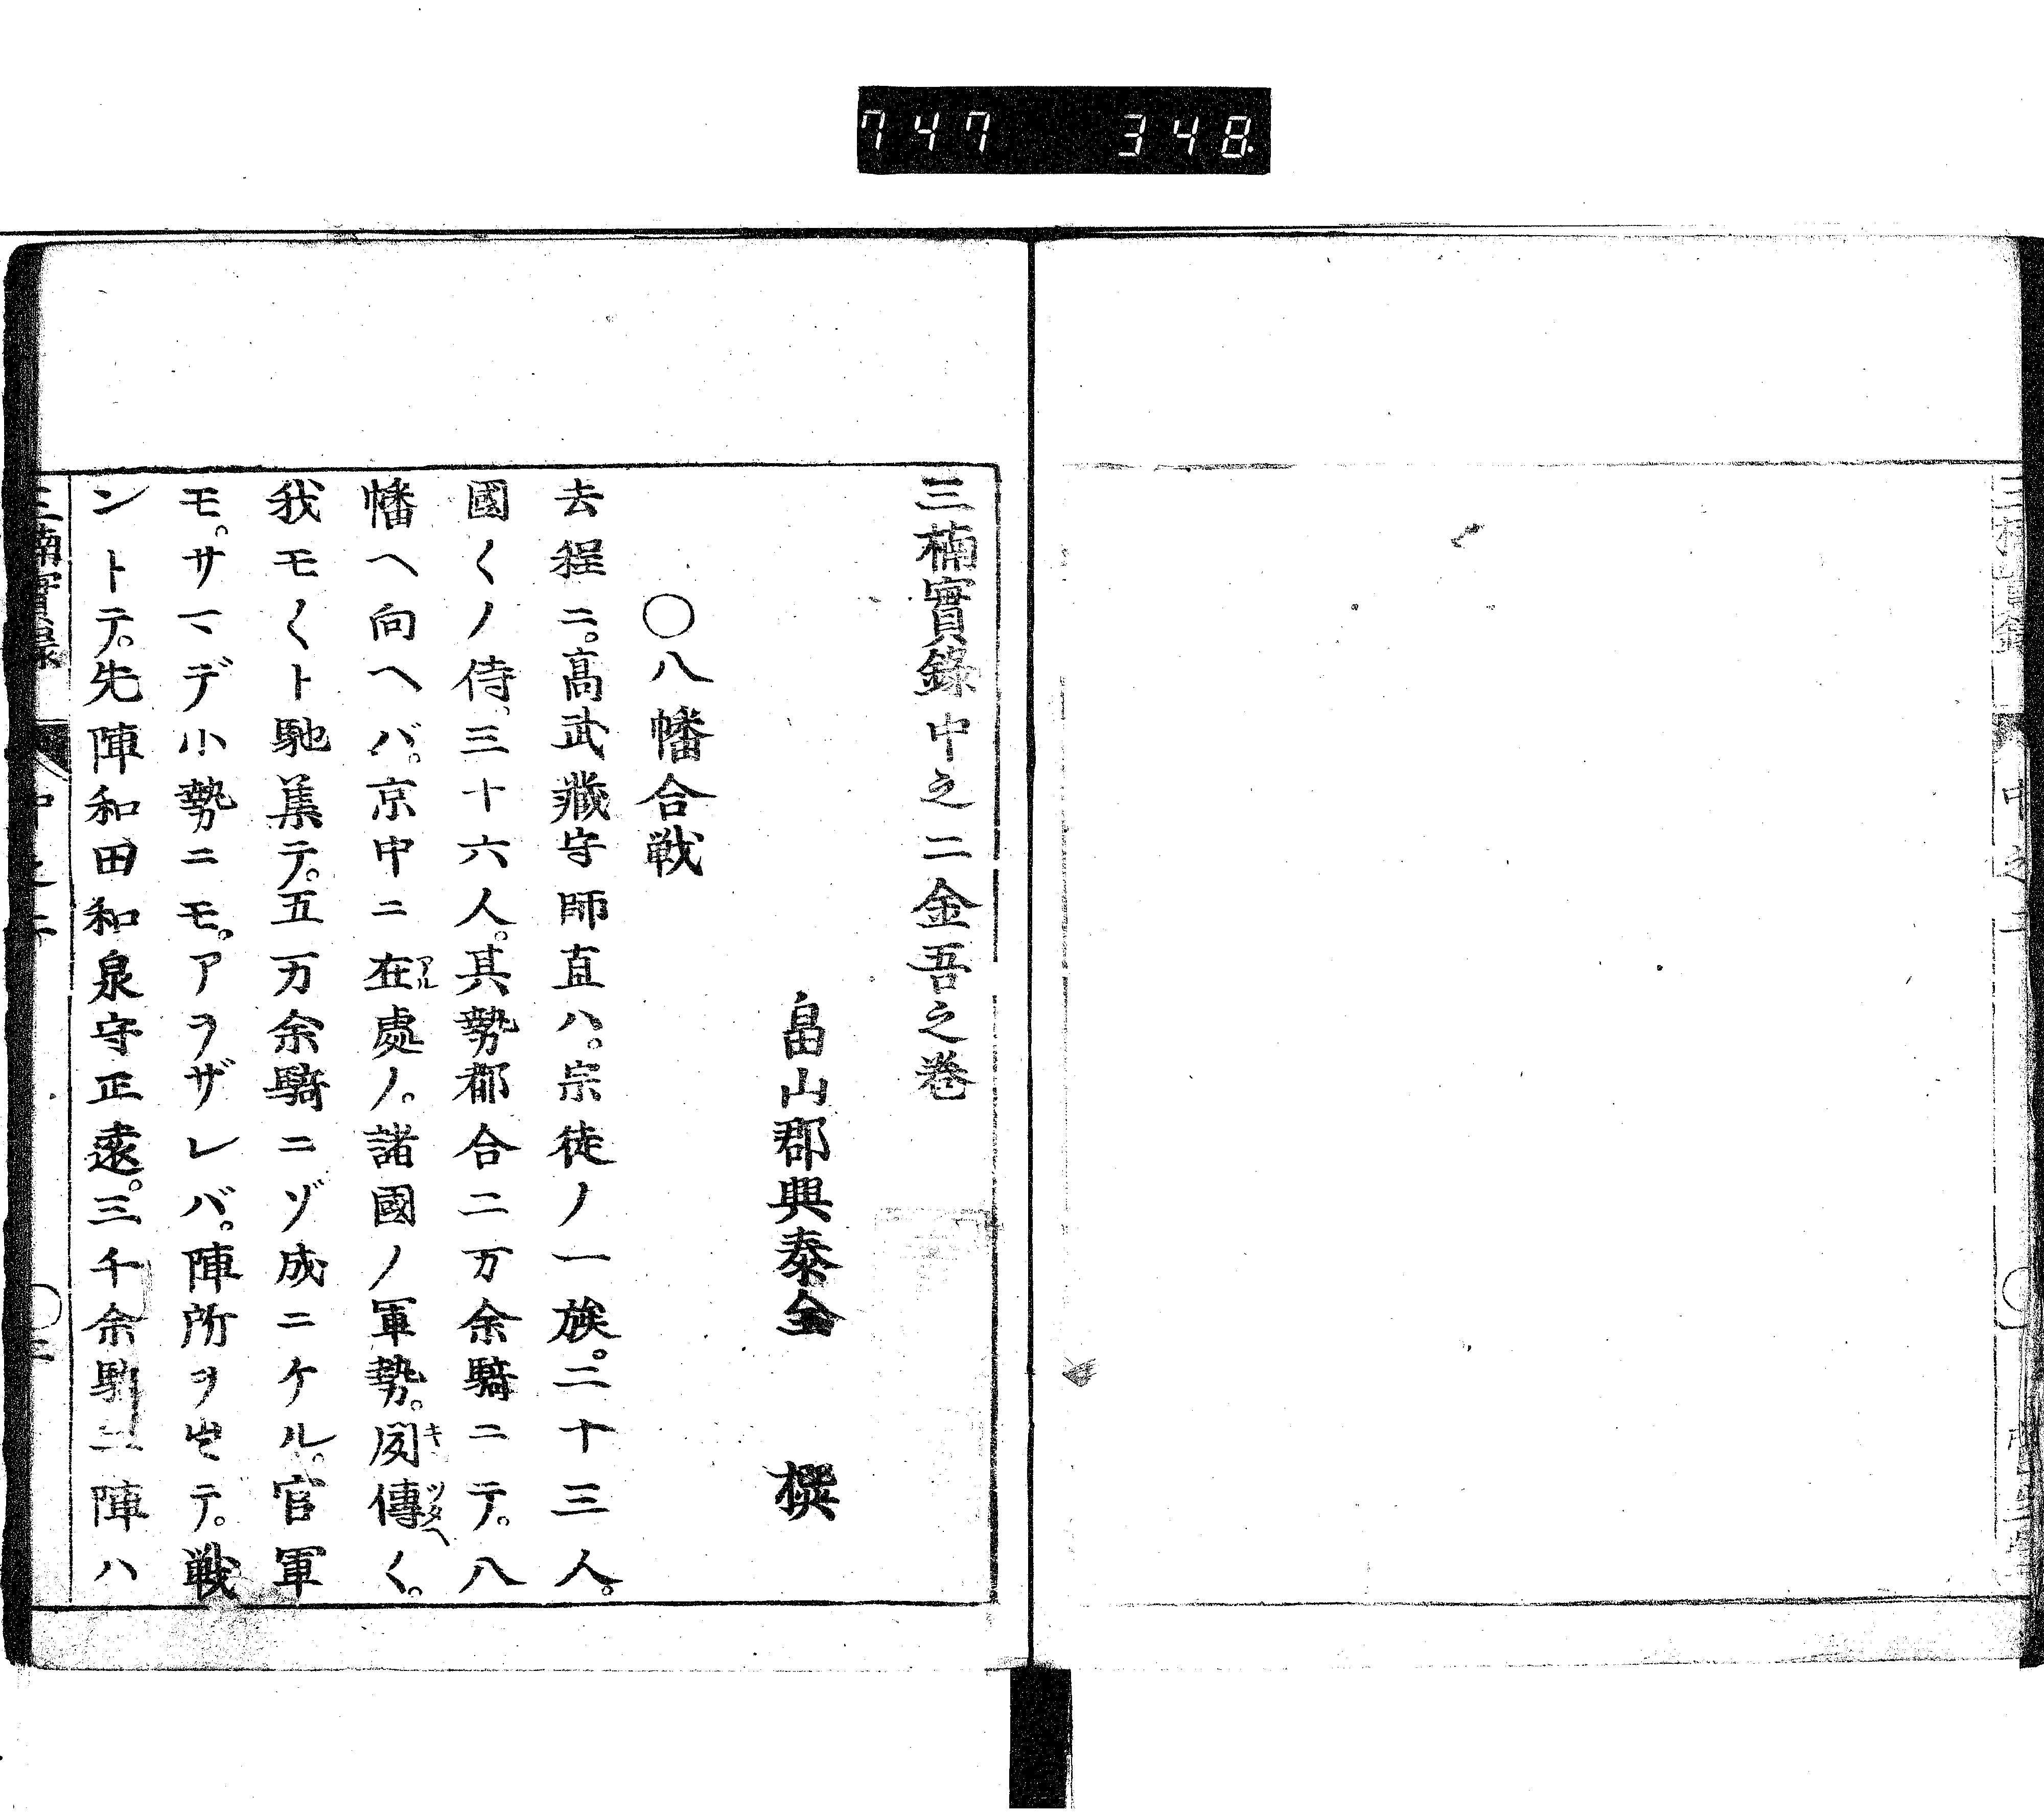 747 348
三楠實錄中之二金吾之巻
畠山郡興泰全 撰
○八幡合戦
去程ニ。高武藏守師直ハ。宗徒ノ一族。二十三人。
國〱ノ侍。三十六人。其勢都合二万余騎ニテ。八
幡ヘ向ヘバ。京中ニ在アル處ノ。諸國ノ軍勢。聞キ傳ツタヘ〱。
我モ〱ト馳集テ。五万余騎ニゾ成ニケル。官軍
モ。サマデ小勢ニモ。アヲザレバ。陣所ヲ出テ。戦
ントテ。先陣和田和泉守正遠。三千余騎二陣ハ
三楠實錄 中之二